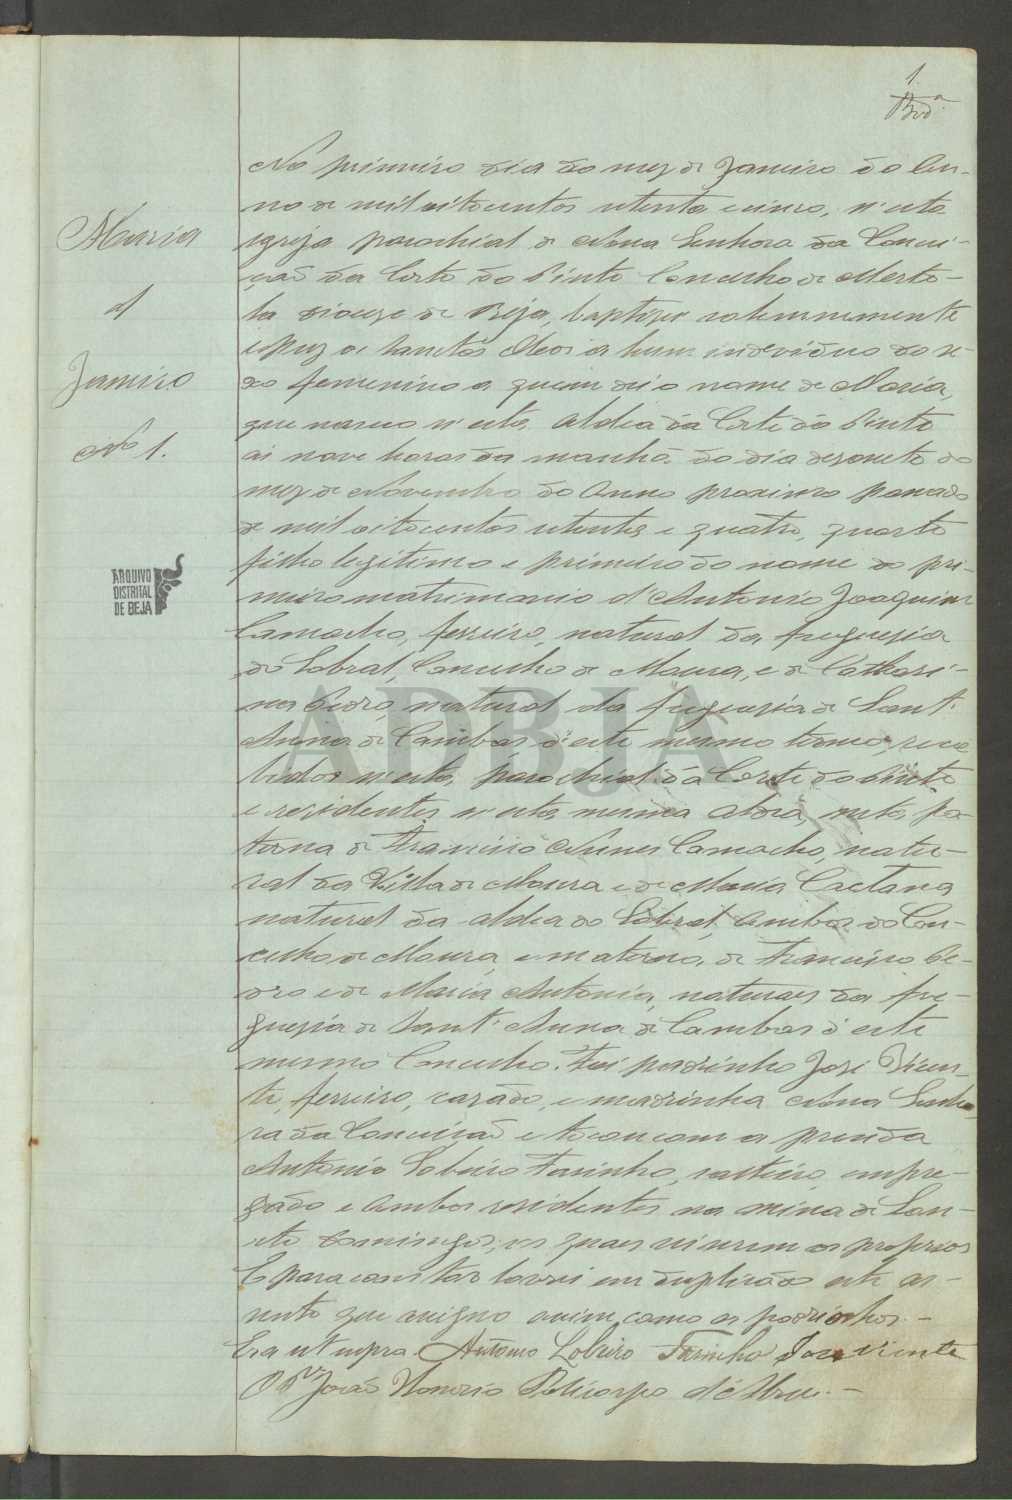 1.
No primeiro dia do mez de Janeiro do An-
no de mil oitocentos oitenta e cinco, n'esta
Maria
igreja parochial de Nossa Senhora da Concei-
ção da Corte do Pinto Concelho de Merto-
1
la diocese de Beja, baptisei solemnemente
e puz os Sanctos Oleos a hum individuo do se-
Janeiro
xo femenino a quem dei o nome de Maria,
que nasceu n'esta, aldea da Corte do Pinto
Nº 1.
ás nove horas da manhã do dia desoneto do
mez de Novembro do Anno proximo passado
de mil oitocentos oitenta e quatro, quarto
filho legitimo e primeiro do nome do pri-
ARQUIVO
DISTRITAL
DE BEJA
meiro matrimonio d'Antonio Joaquim
Camacho, ferreiro, natural da freguesia
do Sobral, Concelho de Moura, e de Cathari-
na Pedro, natural da freguesia de Sant'
ADBJA
Anna de Cambas d'este mesmo termo, rece-
bidos n'esta, parochial da Corte do Pinto
e residentes n'esta mesma aldea, neta pa-
terna de Francisco Nunes Camacho, natu-
ral da Villa de Moura e de Maria Caetana
natural da aldea do Sobral, ambos do Con-
celho de Moura, e materna, de Francisco Pe-
dro e de Maria Antonia, naturaes da fre-
guesia de Sant' Anna de Cambas d'este
mesmo Concelho. Foi padrinho José Vicen-
te, ferreiro, casado, e madrinha Nossa Senho-
ra da Conceição e tocou com a prenda
Antonio Lobeiro Farinho, solteiro, empre-
gado e ambos residentes na mina de San-
cto Domingos, os quaes os proprios
E para constar lavrei em duplicado este as-
sento que assigno assim como os padrinhos. -
Era ut supra. Antonio Lobeiro Farinho José Vicente
O Pr. João Honorio Policarpo d'Abreu. -